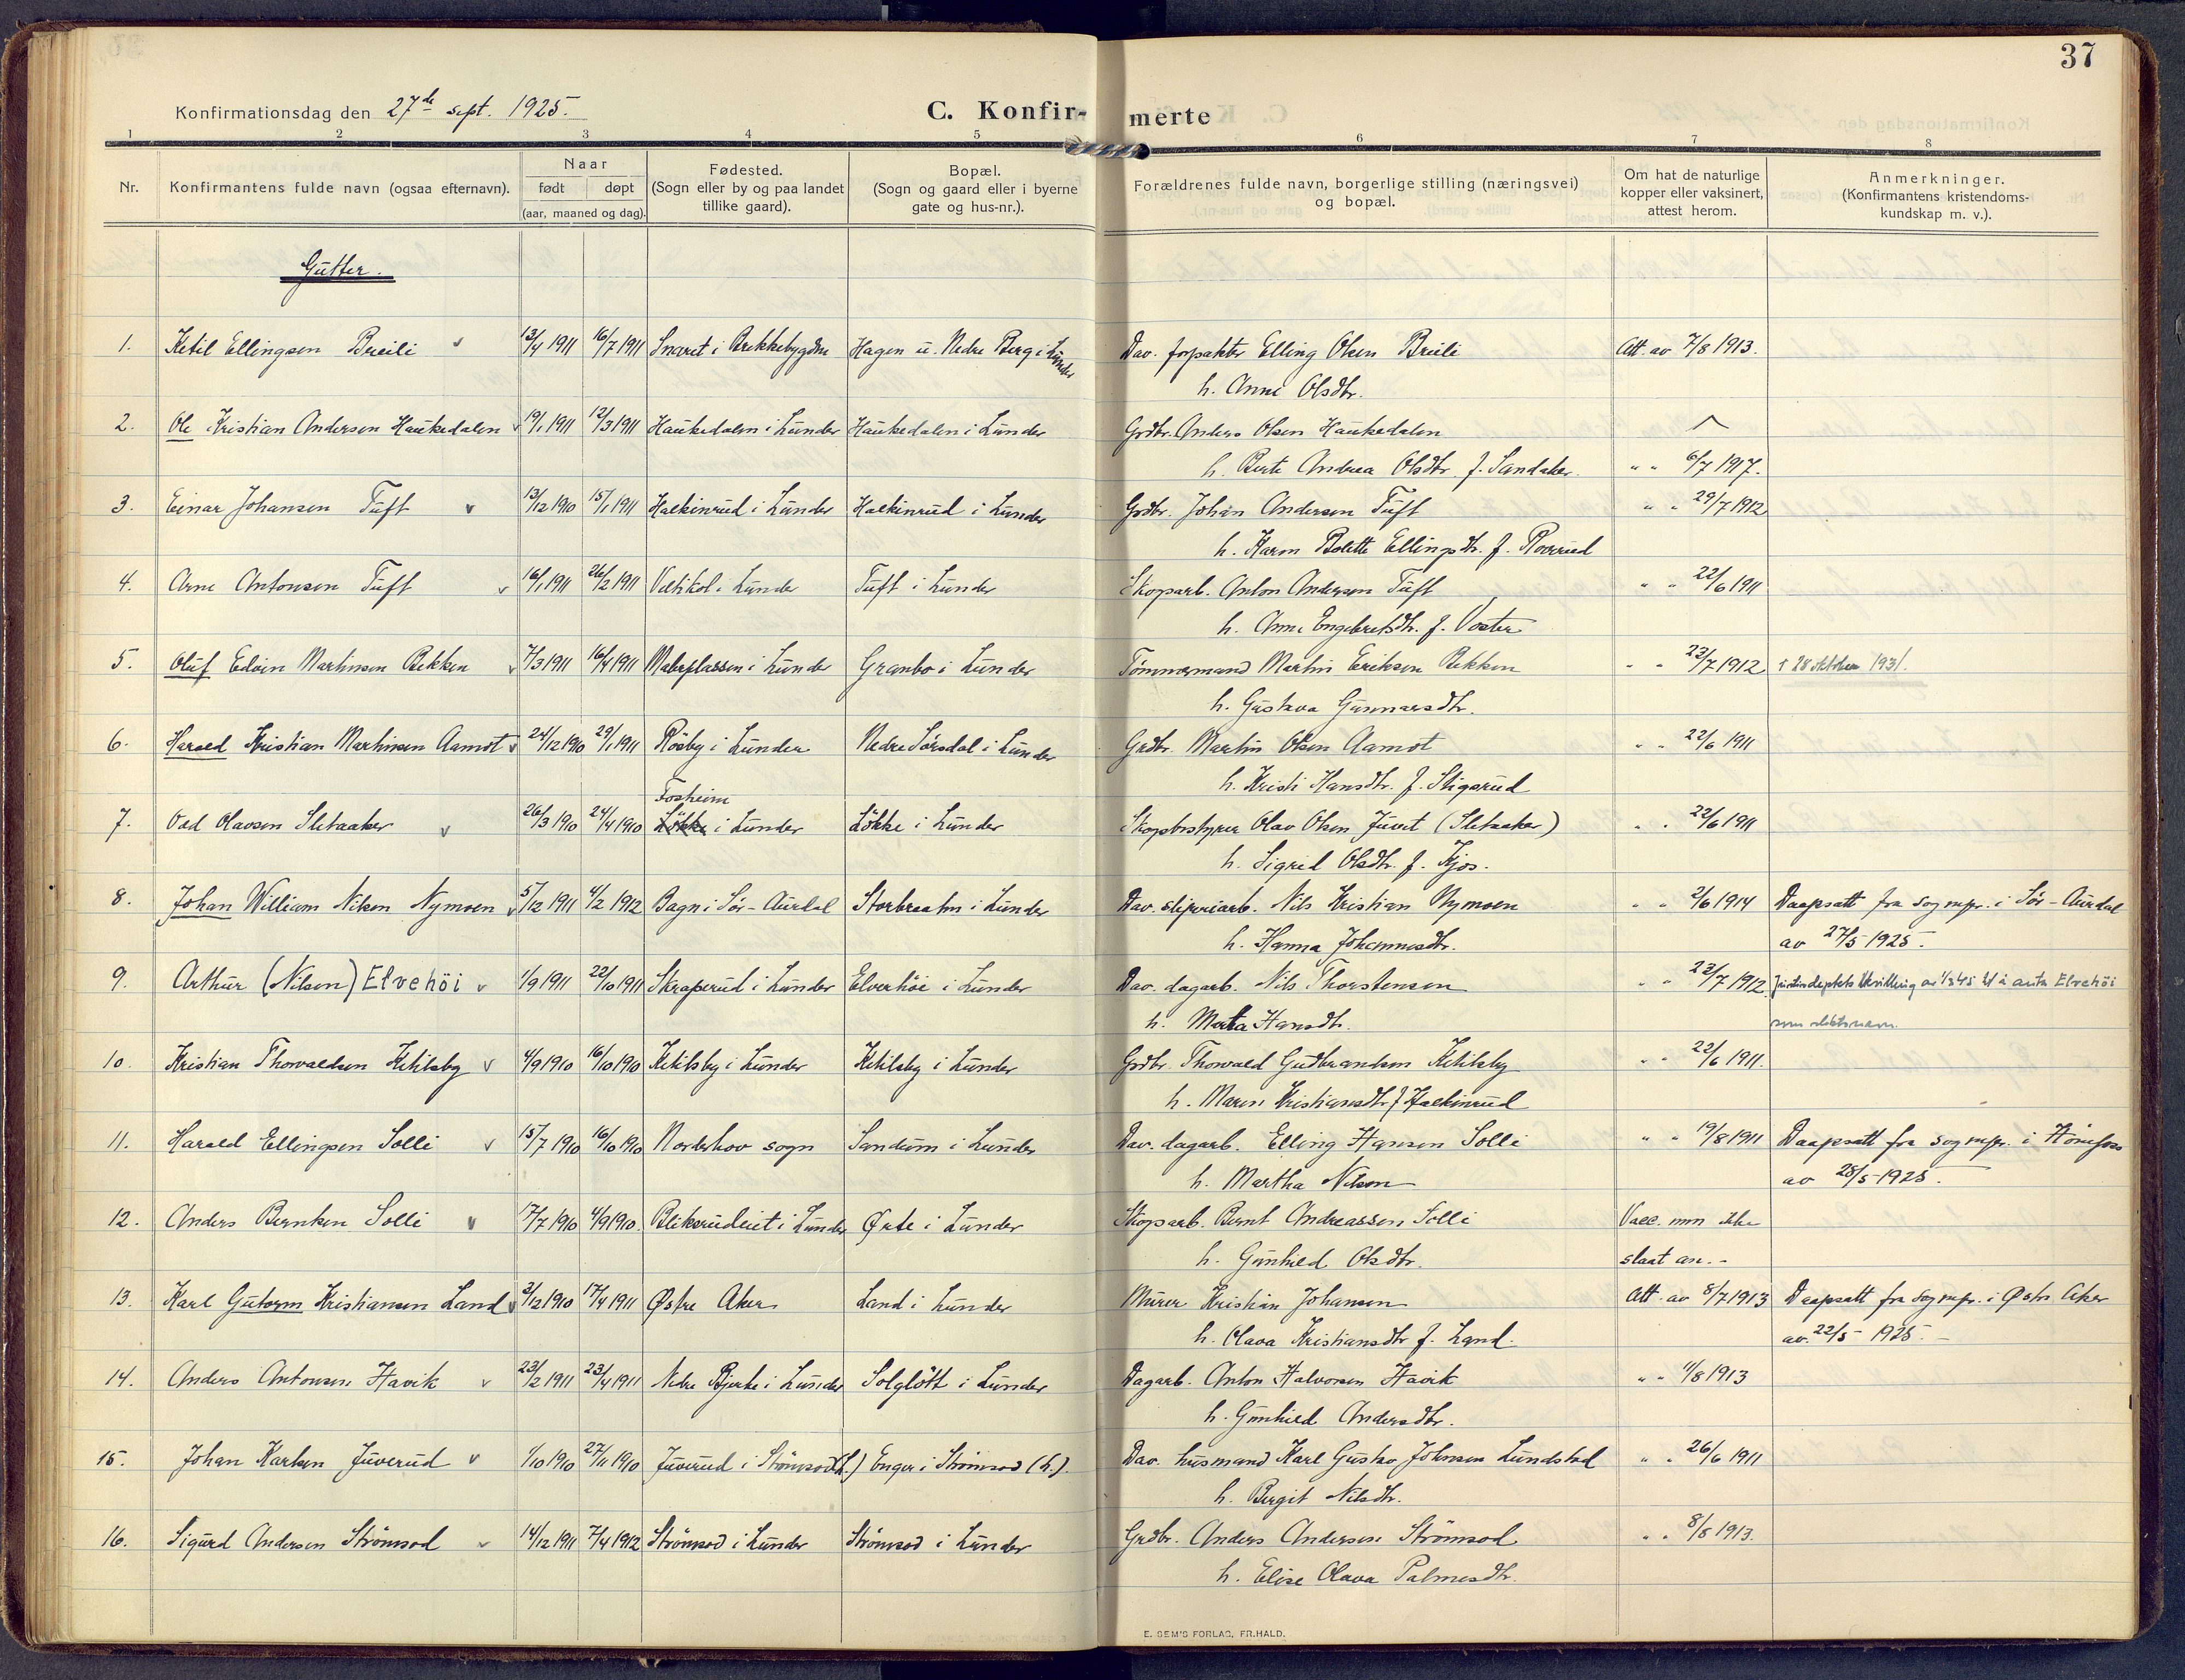 37
Konfirmationsdag den 27de sept. 1925.
C. Konfir- merte
1 2 3 4 5 6 7 8
Nr. Konfirmantens fulde navn (ogsaa efternavn). Naar født døpt (aar, maaned og dag). Fødested. (Sogn eller by og paa landet tillike gaard). Bopæl. (Sogn og gaard eller i byerne gate og hus-nr.). Forældrenes fulde navn, borgerlige stilling (næringsvei) og bopæl. Om hat de naturlige kopper eller vaksinert, attest herom. Anmerkninger. (Konfirmantens kristendoms-kundskap m. v.).
Gutter.
1. Ketil Ellingsen Breili 13/4 1911 16/7 1911 Snaret i Brekkebygden Hagen u. Nedre Berg i Lunder Dav. forpakter Elling Olsen Breili Att. av 7/8 1913.
h. Anne Olsdtr.
2. Ole Kristian Andersen Haukedalen 19/1 1911 12/3 1911 Haukedalen i Lunder Haukedalen i Lunder Grdbr. Anders Olsen Haukedalen
h. Berte Andrea Olsdtr. f. Sandaker " " 6/7 1917.
3. Einar Johansen Tuft 13/12 1910 15/1 1911 Halkinrud i Lunder Halkinrud i Lunder Grdbr. Johan Andersen Tuft " " 29/7 1912
h. Karen Bolette Ellingsdtr. f.
4. Arne Antonsen Tuft 16/1 1911 26/2 1911 Veltikol i Lunder Tuft i Lunder Skogsarb. Anton Andersen Tuft " " 22/6 1911
h. Anne Engebretsdtr. f.
5. Oluf Edvin Martinsen Bekken 7/3 1911 16/4 1911 i Lunder Granbo i Lunder Tømmermand Martin Eriksen Bekken " " 23/7 1912 † 28 oktober 1931.
h. Gustava Gunnarsdtr.
6. Harald Kristian Martinsen Aamot 24/12 1910 29/1 1911 Røsby i Lunder Nedre Sørsdal i Lunder Grdbr. Martin Olsen Aamot " " 22/6 1911
h. Kristi Hansdtr. f. Stigsrud
Fosheim
7. Odd Olavsen Sletaaker 26/3 1910 24/4 1910 Løkke i Lunder Løkke i Lunder Skogbestyrer Olav Olsen Juvet (Sletaaker) " " 22/6 1911
h. Sigrid Olsdtr. f. Kjos.
8. Johan William Nilsen Nymoen 5/12 1911 4/2 1912 Bagn i Sør-Aurdal Storbraaten i Lunder Dav. sliperiarb. Nils Kristian Nymoen " " 2/6 1914 Daapsatt fra sognepr. i Sør-Aurdal
h. Hanna Johannesdtr. av 27/5 1925.
9. Arthur (Nilsen) Elvehöi 1/9 1911 22/10 1911 Skraperud i Lunder Elverhöi i Lunder Dav. dagarb. Nils Thorstensen " " 23/7 1912 Justisdeptets bevilling av 1/3 45 til å anta Elvehöi
h. Marta Hansdtr. som slektsnavn.
10. Kristian Thorvaldsen Ketilsby 4/9 1910 16/10 1910 Ketilsby i Lunder Ketilsby i Lunder Grdbr. Thorvald Gudbrandsen Ketilsby " " 22/6 1911.
h. Maren Kristiansdtr. f. Halkinrud
11. Harald Ellingsen Solli 15/7 1910 16/10 1910 Norderhov sogn Sandum i Lunder Dav. dagarb. Elling Hansen Solli " " 19/8 1911 Daapsatt fra sognepr. i Hønefoss
h. Martha Nilsen av 28/5 1925.
12. Anders Berntsen Solli 17/7 1910 4/9 1910. i Lunder Ørte i Lunder Skogsarb. Bernt Andreassen Solli Vacc. men ikke
h. Gunhild Olsdtr. slaat an. -
13. Karl Gutorm Kristiansen Land 2/12 1910 17/4 1911 Østre Aker Land i Lunder Murer Kristian Johansen Att. av 8/7 1913 Daapsatt fra sognepr. i Østre Aker
h. Olava Kristiansdtr f. Land. av 22/5 1925. -
14. Anders Antonsen Havik 23/2 1911 23/4 1911 Nedre Bjerke i Lunder Solgløtt i Lunder Dagarb. Anton Halvorsen Havik " " 11/8 1913
h. Gunhild Andersdtr.
15. Johan Karlsen Juverud 1/10 1910 27/11 1910 Juverud i Strømsod (L.) Enger i Strømsod (L.). Dav. husmand Karl Gustav Johnsen Lundstad " " 26/6 1911
h. Bergit Nilsdtr.
16. Sigurd Andersen Strømsod 14/12 1911 7/4 1912 Strømsod i Lunder Strømsod i Lunder Grdbr. Anders Andersen Strømsod " " 8/8 1913.
h. Elise Olava Palmesdtr.
E. SEM'S FORLAG, FR.HALD.